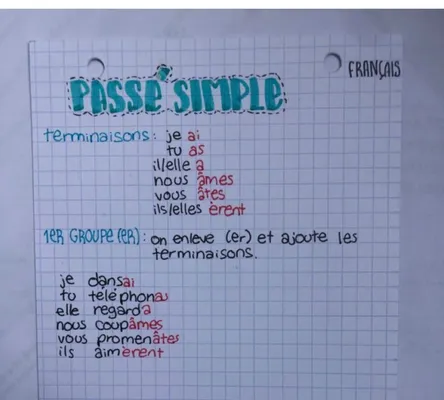 FRANÇAIS
PASSÉ SIMPLE
terminaisons: je ai
tu as
il/elle a
nous âmes
vous âtes
ils/elles èrent
1ER GROUPE (ER): on enleve (er) et ajoute les
terminaisons.
je dansai
tu telephonas
elle regarda
nous coupâmes
vous promenâtes
ils aimèrent